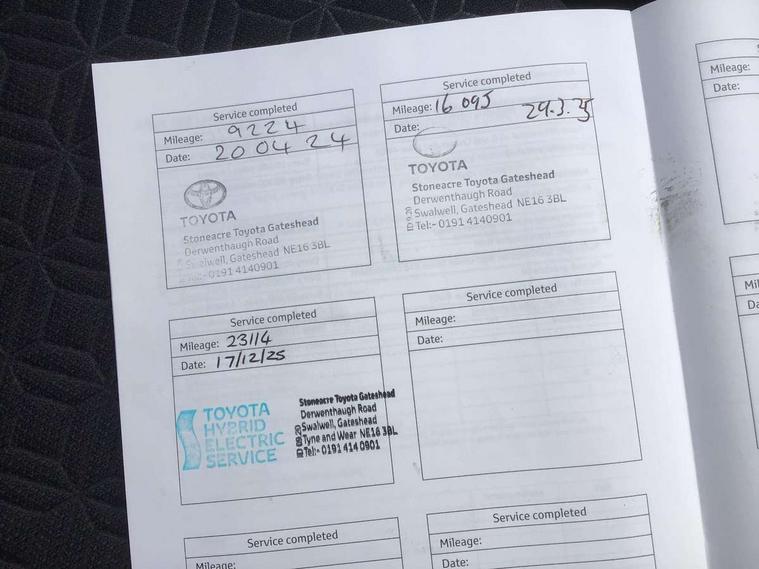 Service completed
Mileage: 9224
Date: 20 04 24
TOYOTA
Stoneacre Toyota Gateshead
Derwenthaugh Road
Swalwell, Gateshead NE16 3BL
Tel:- 0191 4140901
Service completed
Mileage: 16 095
Date: 29.3.25
TOYOTA
Stoneacre Toyota Gateshead
Derwenthaugh Road
Swalwell, Gateshead NE16 3BL
Tel:- 0191 4140901
Service completed
Mileage: 23114
Date: 17/12/25
TOYOTA
HYBRID
ELECTRIC
SERVICE
Stoneacre Toyota Gateshead
Derwenthaugh Road
Swalwell, Gateshead
Tyne and Wear NE16 3BL
Tel:- 0191 414 0901
Service completed
Mileage:
Date:
Service completed
Mileage:
Service completed
Mileage:
Date:
Mileage:
Date: